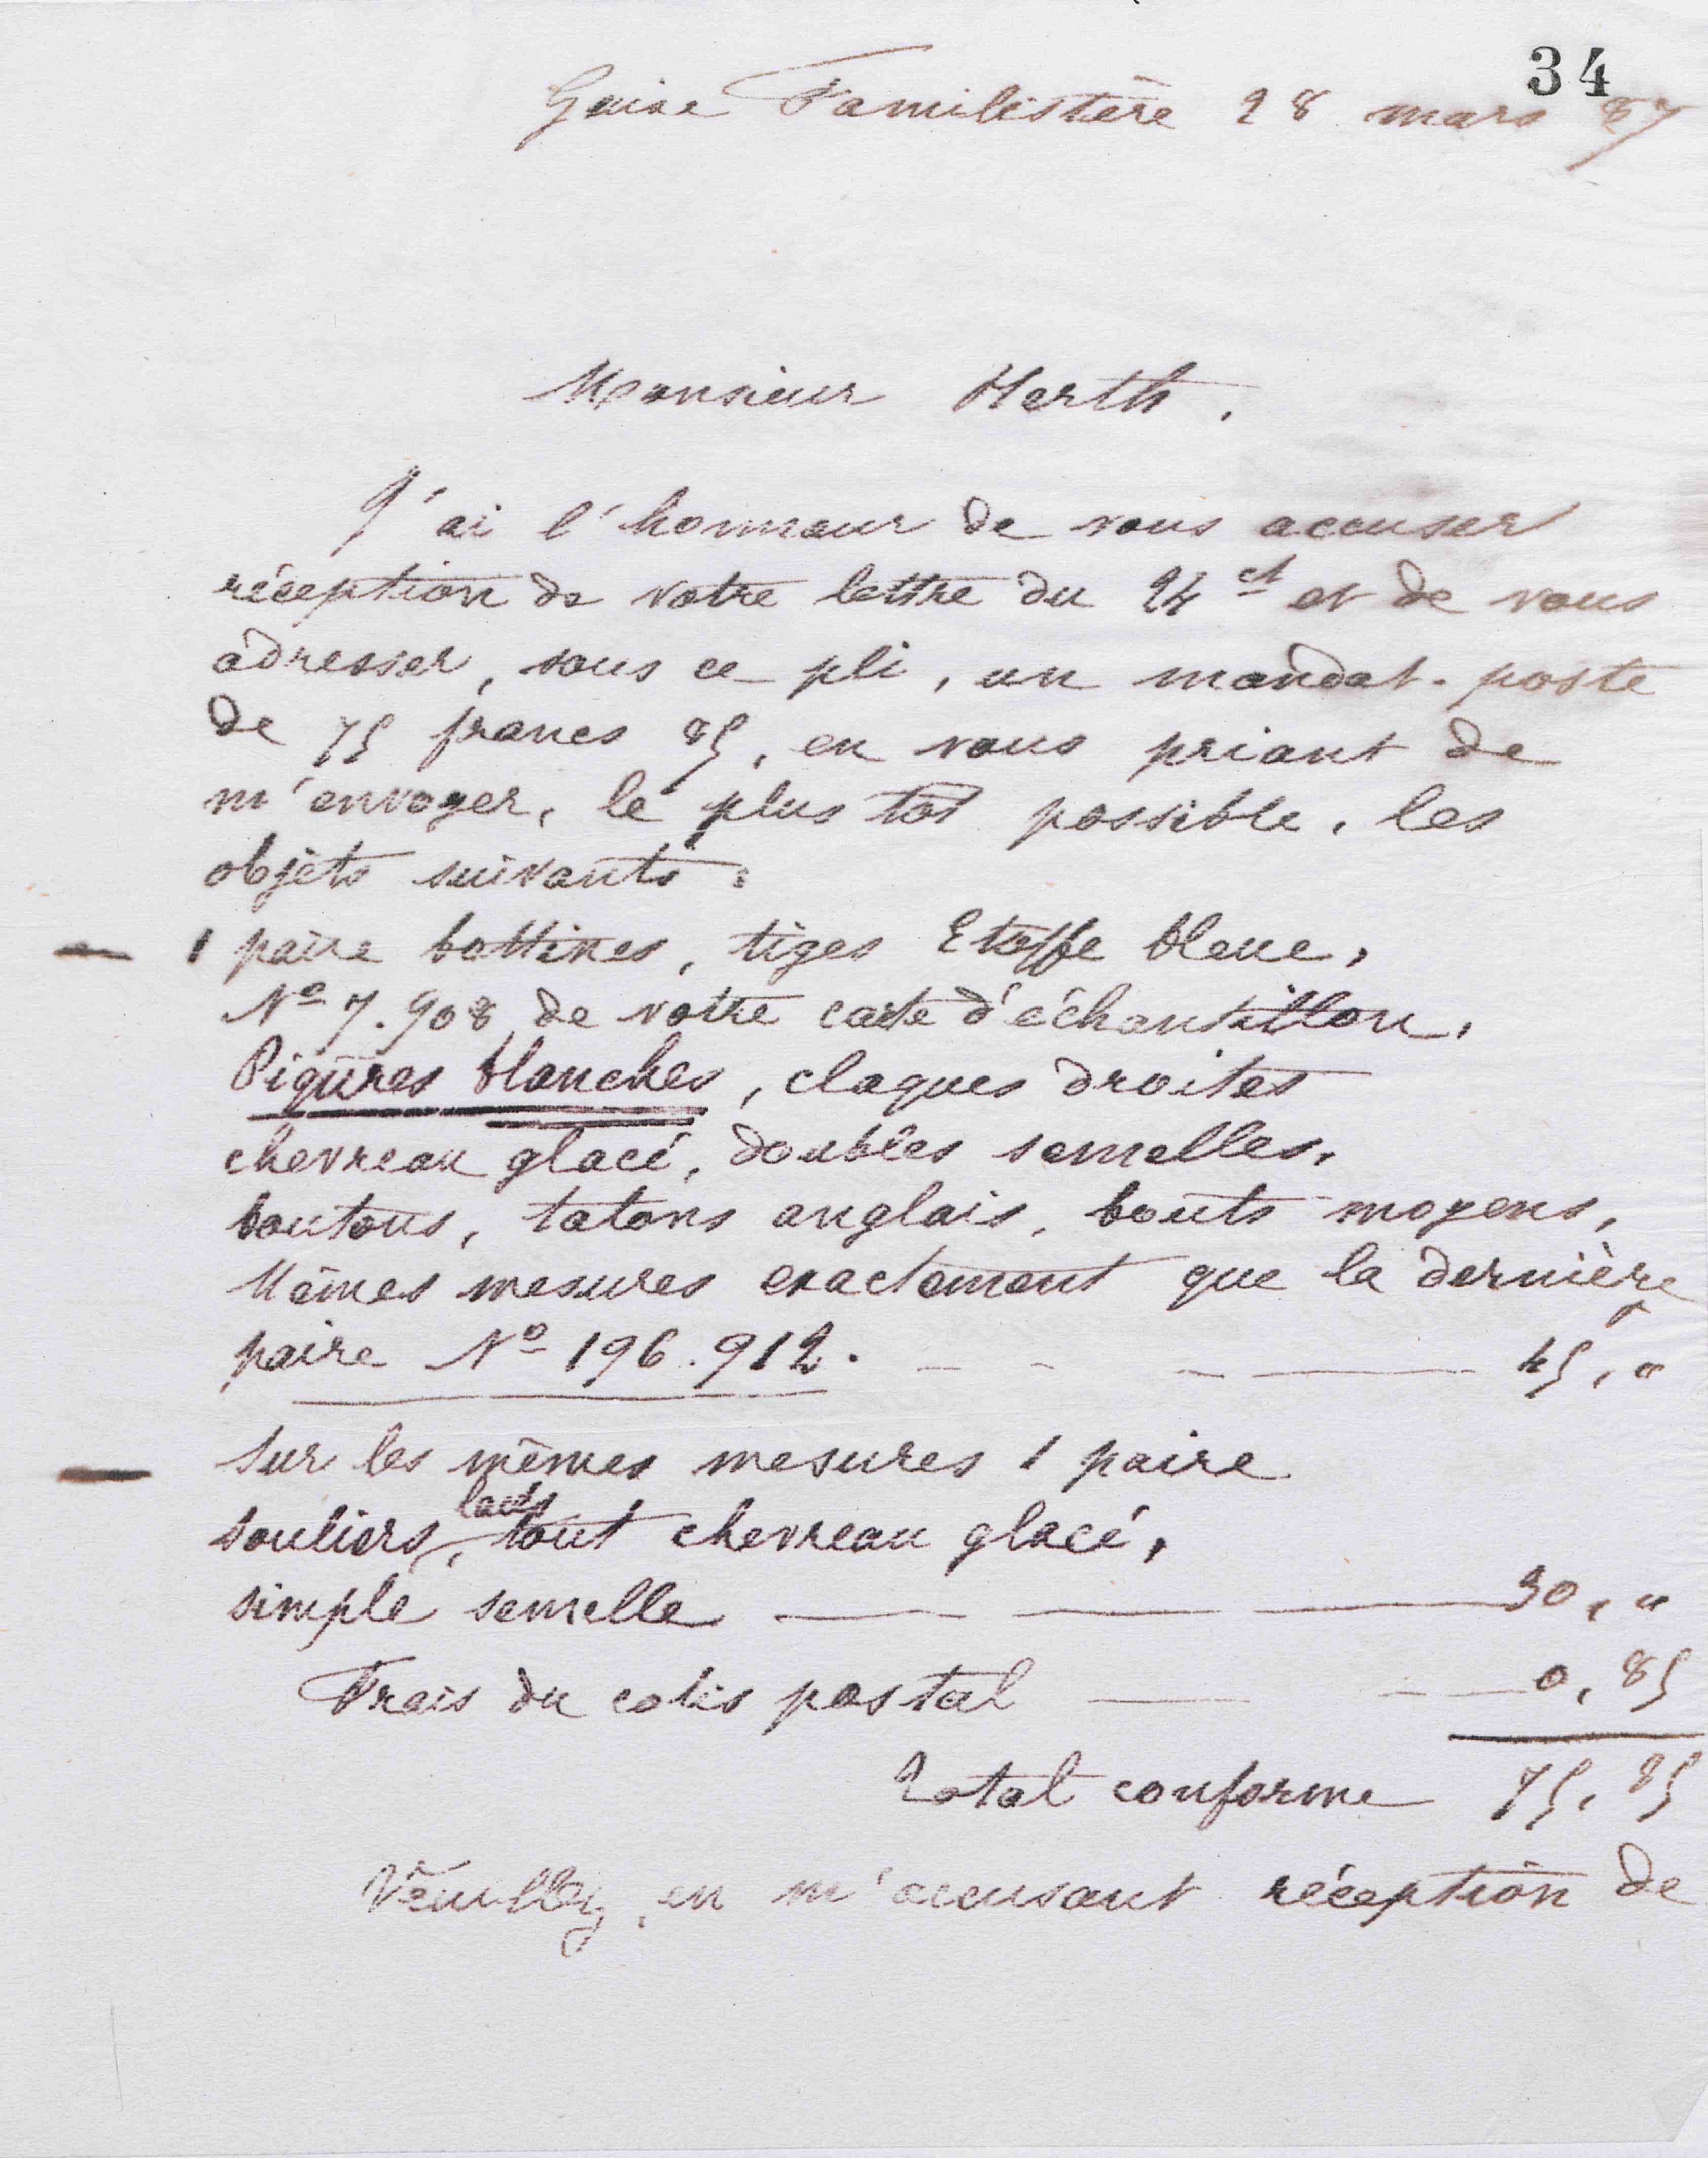 34
Guise Familistère 28 mars 87
Monsieur Herth.
J'ai l'honneur de vous accuser
réception de votre lettre du 24 ct et de vous
adresser, sous ce pli, un mandat-poste
de 75 francs 85, en vous priant de
m'envoyer, le plus tôt possible, les
objets suivants :
1 paire bottines, tiges Etoffe bleue,
No 7.908 de votre carte d'échantillon,
Piqûres blanches, claques droites
chevreau glacé, doubles semelles,
boutons, talons anglais, bouts moyens,
Mêmes mesures exactement que la dernière
paire No 196.912. — — — — 45, "
Sur les mêmes mesures 1 paire
souliers lacés, tout chevreau glacé,
simple semelle — — — 30, "
Frais du colis postal — — — 0, 85
Total conforme 75, 85
Veuillez, en m'accusant réception de